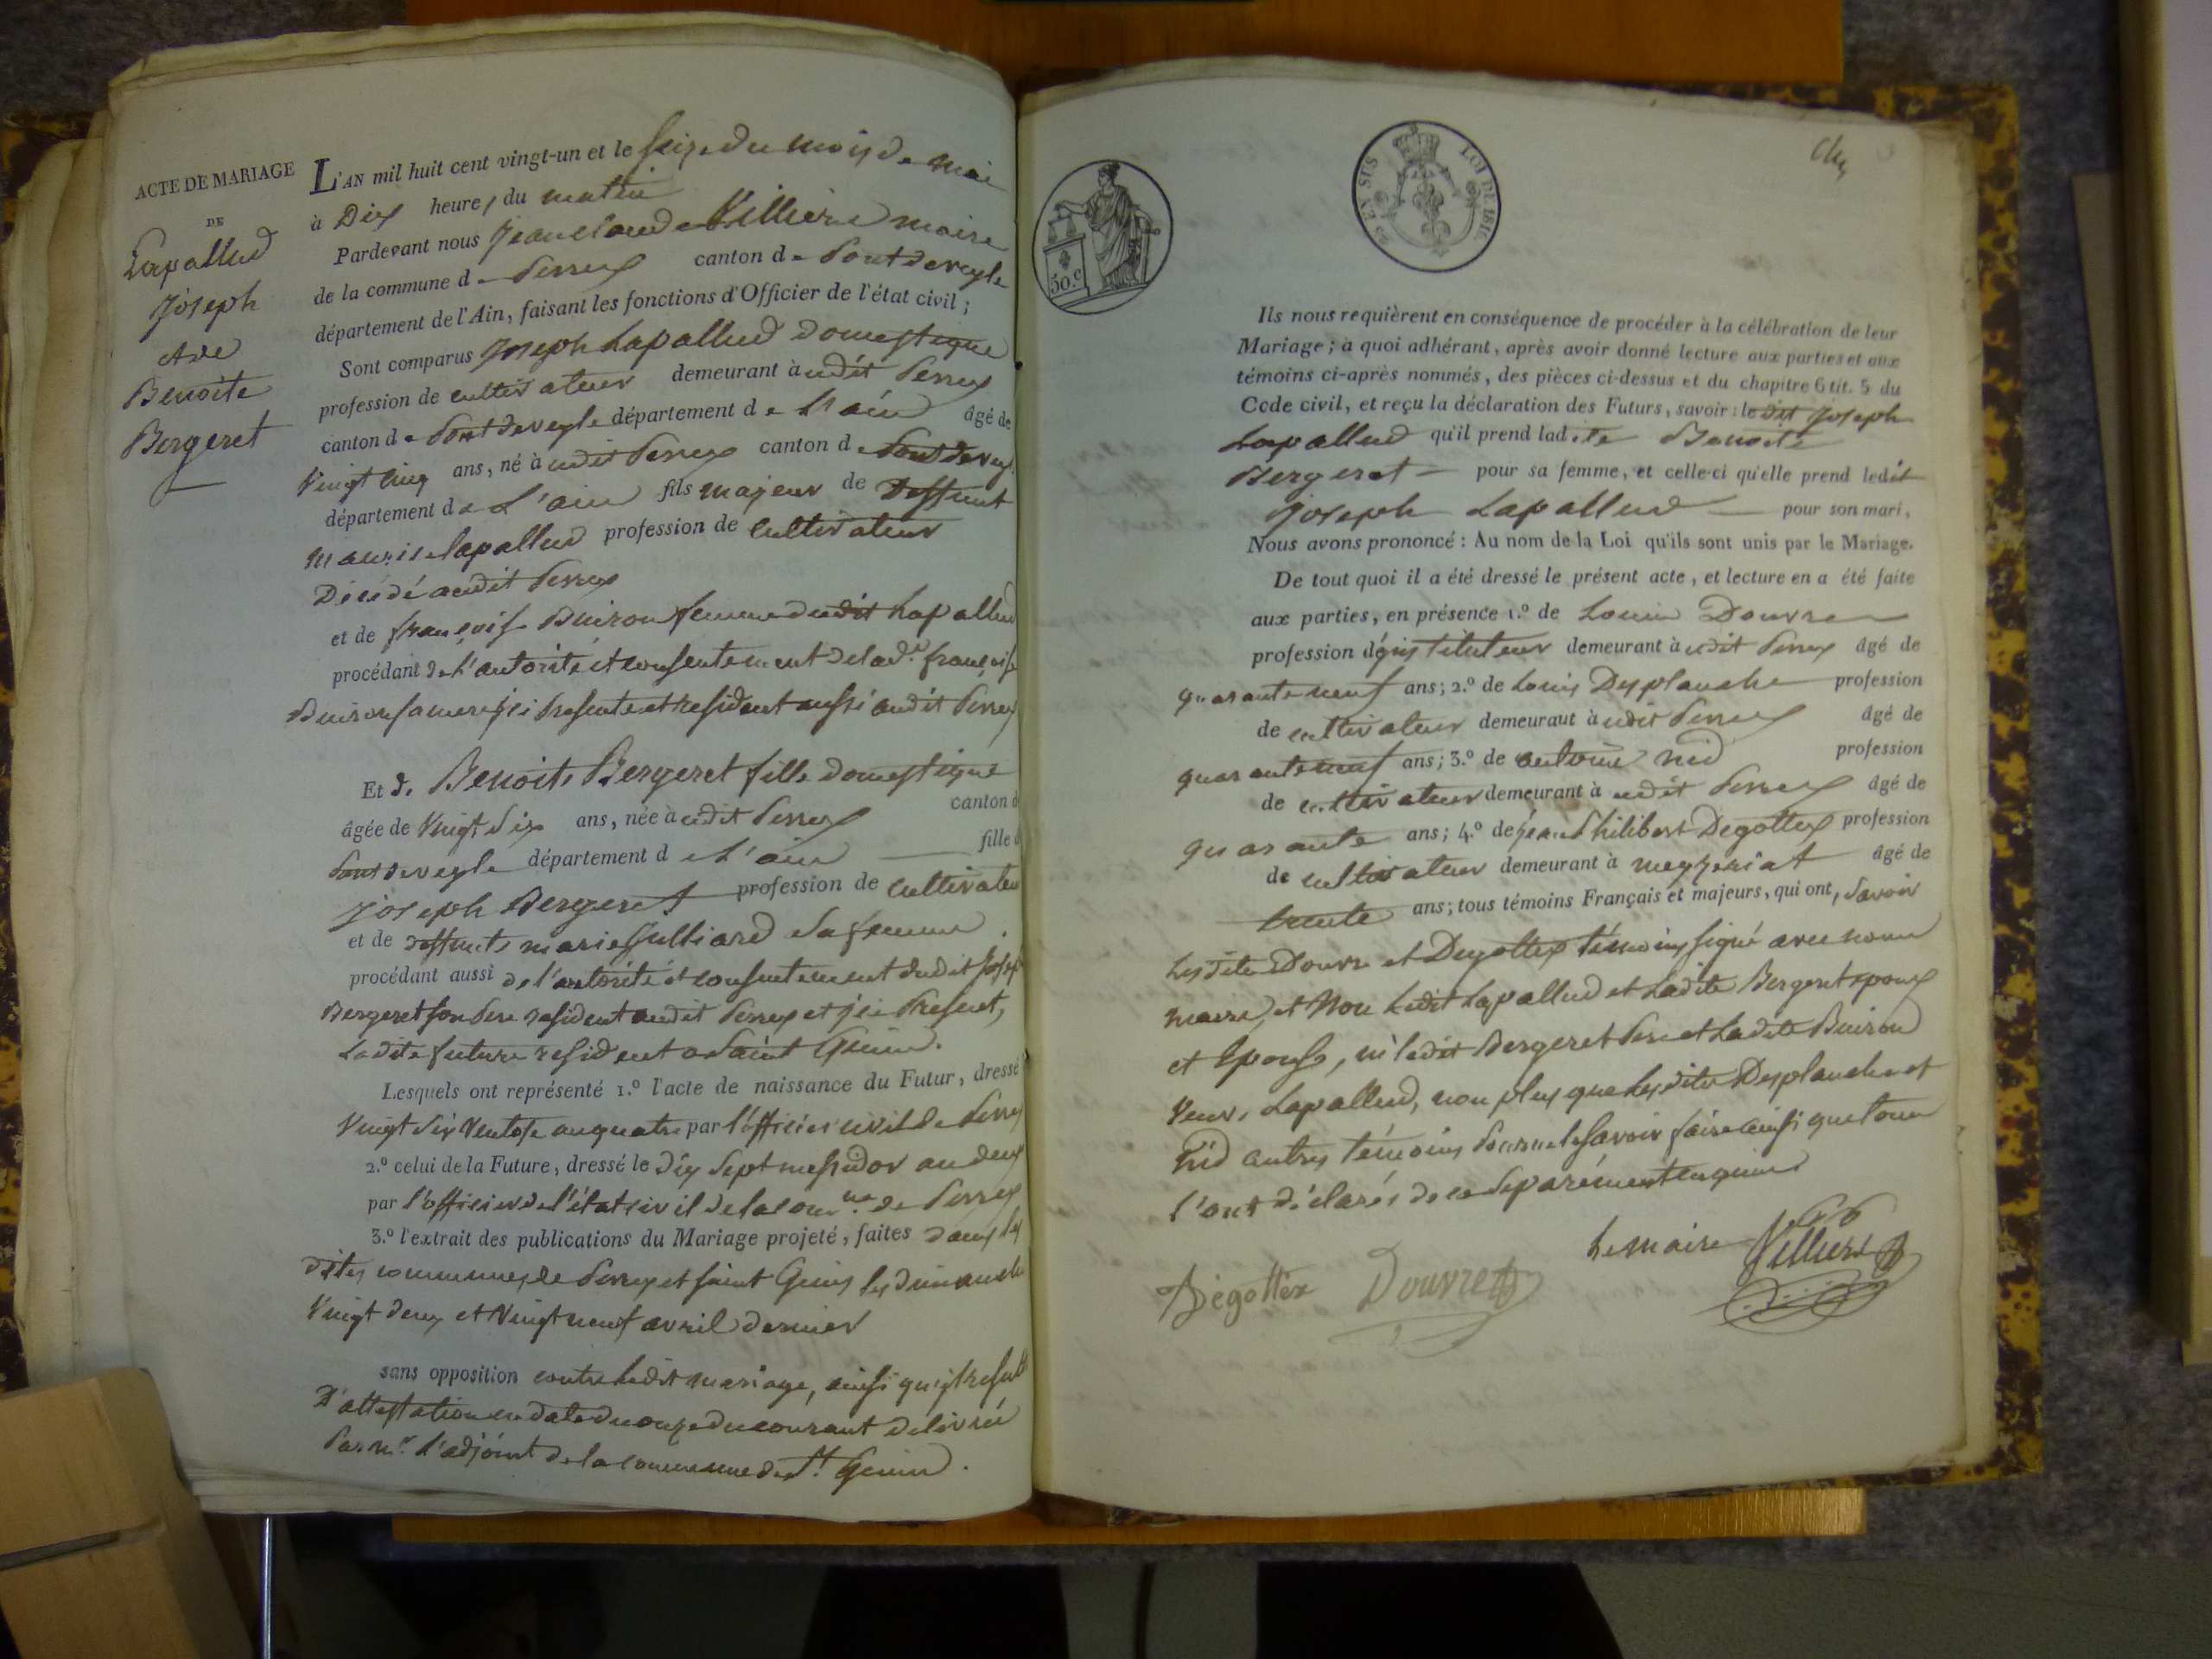 ACTE DE MARIAGE
DE
Lapallud
Joseph
et de
Benoite
Bergeret
L'AN mil huit cent vingt-un et le seize du mois de mai
à Dix heures du matin
Pardevant nous jean claude Villiere maire
de la commune de Perrex canton de Pontdeveyle
département de l'Ain, faisant les fonctions d'Officier de l'état civil ;
Sont comparus joseph Lapallud domestique
profession de cultivateur demeurant à udit Perrex
canton de Pontdeveyle département de L'ain âgé de
Vingt cinq ans, né à udit Perrex canton de Pontdeveyle
département de L'ain fils majeur de deffunt
mauris lapallud profession de cultivateur
Décédé audit Perrex
et de françoise Buiron femme dudit Lapallud
procédant de l'autorité et consentement de lad.e françoise
Buiron sa mere ici Presente et resident aussi audit Perrex
Et de Benoite Bergeret fille domestique
âgée de Vingt Six ans, née à udit Perrex canton d
Pontdeveyle département de L'ain fille d
joseph Bergeret profession de cultivateur
et de deffunte marie Julliard Sa femme
procédant aussi de l'autorité et consentement dudit joseph
Bergeret son Pere resident audit Perrex et ici Present,
Ladite future resident a Saint Genis.
Lesquels ont représenté 1.º l'acte de naissance du Futur, dressé
Vingt Six Ventose an quatre par l'officier civil de Perrex
2.º celui de la Future, dressé le Dix Sept messidor an deux
par l'officier de l'état civil de la com.ne de Perrex
3.º l'extrait des publications du Mariage projeté, faites dans les
dites communes de Perrex et Saint Genis les dimanche
Vingt deux et Vingt neuf avril dernier
sans opposition contre ledit mariage, ainsi qu'il resulte
D'attestation en date du onze du courant délivrée
Par mr. L'adjoint de la commune de St. Genis.
50.c
EN SUS
LOI DE 1816
Ils nous requièrent en conséquence de procéder à la célébration de leur
Mariage ; à quoi adhérant, après avoir donné lecture aux parties et aux
témoins ci-après nommés, des pièces ci-dessus et du chapitre 6 tit. 5 du
Code civil, et reçu la déclaration des Futurs, savoir : ledit joseph
Lapallud qu'il prend ladite Benoite
Bergeret pour sa femme, et celle-ci qu'elle prend ledit
joseph Lapallud pour son mari,
Nous avons prononcé : Au nom de la Loi qu'ils sont unis par le Mariage.
De tout quoi il a été dressé le présent acte, et lecture en a été faite
aux parties, en présence 1.º de Louis Douvre
profession d'instituteur demeurant à udit Perrex âgé de
quarante neuf ans ; 2.º de Louis Desplanche profession
de cultivateur demeurant à udit Perrex âgé de
quarante neuf ans ; 3.º de antoine nid profession
de cultivateur demeurant à udit Perrex âgé de
quarante ans ; 4.º de jean Philibert Degottex profession
de cultivateur demeurant à mezeriat âgé de
trente ans ; tous témoins Français et majeurs, qui ont, Savoir
Lesdits Douvre et Degottex témoins signé avec nous
maire, et Non Ledit Lapallud et Ladite Bergeret epoux
et Epouse, ni ledit Bergeret Pere et Ladite Buiron
Veuve Lapallud, non plus que Lesdits Desplanche et
Nid autres témoins Pour ne le Savoir faire ainsi que tous
l'ont déclarés de ce Séparément enquis
Le maire Villiere
Degottex Douvre